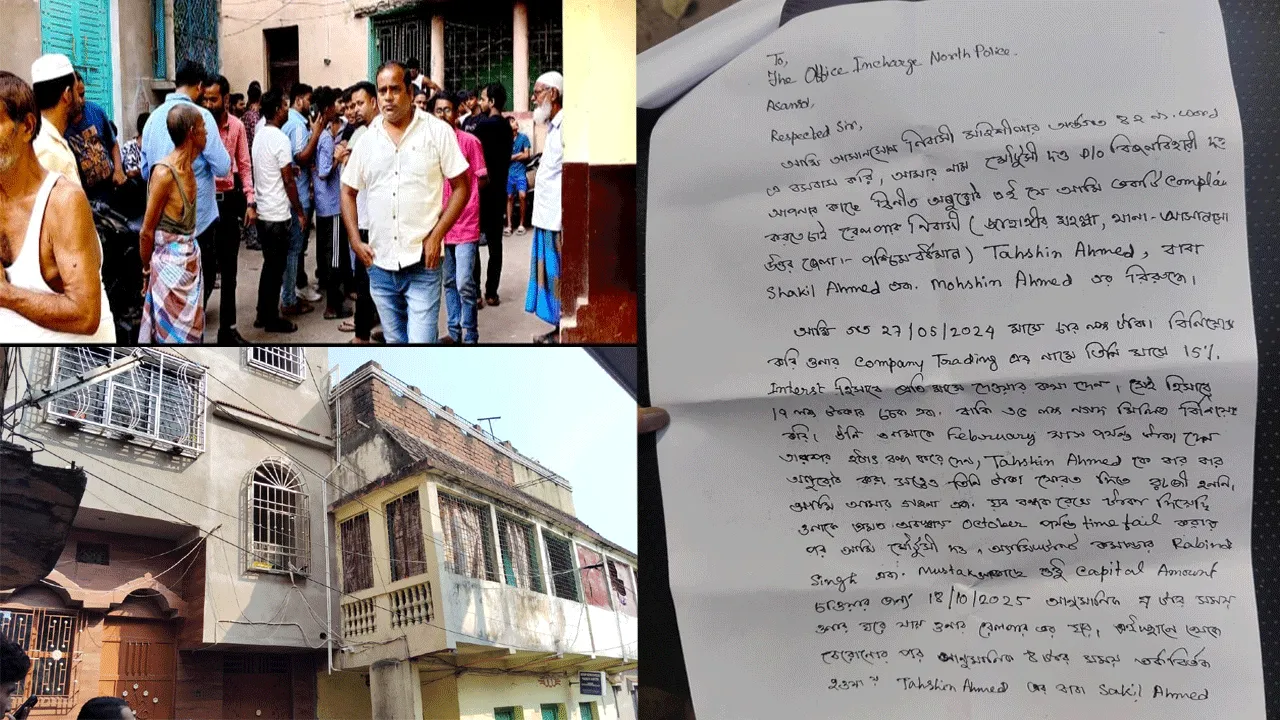 To,
The Office Imcharge North Police.
Asansol,
Respected Sir,
আমি আসানসোল নিবাসী মহিশীলার অন্তর্গত ৪২ নং ward
এ বসবাস করি, আমার নাম মৌর্সুমী দত্ত D/O বিজনবিহারী দত্ত
আপনার কাছে বিনীত অনুরোধ এই যে আমি একটি Complain
করতে চাই রেলপার নিবাসী ( জাহাঙ্গীর মহল্লা, থানা - আসানসোল
উত্তর জেলা :- পশ্চিমবর্ধমান ) Tahshin Ahmed, বাবা
Shakil Ahmed এবং Mohshin Ahmed এর বিরুদ্ধে।
আমি গত 27/05/2024 মাসে চার লক্ষ টাকা বিনিয়োগ
করি ওনার Company Trading এর নামে তিনি মাসে 15%
Interst হিসাবে প্রতি মাসে দেওয়ার কথা দেন, সেই হিসাবে
১৭ লক্ষ টাকার চেক এবং বাকি ৩৫ লক্ষ নগদ মিলিয়ে বিনিয়োগ
করি। উনি আমাকে February মাস পর্যন্ত টাকা দেন
তারপর হঠাৎ বন্ধ করে দেন, Tahshin Ahmed কে বার বার
অনুরোধ করা সত্ত্বেও তিনি টাকা ফেরত দিতে রাজী হননি,
আমি আমার গহনা এবং ঘর বন্ধক রেখে টাকা দিয়েছি
ওনাকে October পর্যন্ত time fail করার
পর আমি মৌর্সুমী দত্ত, Rabind
Singh এবং Mustak এই Capital Amount
চাওয়ার জন্য 18/10/2025 আনুমানিক ৭ টার সময়
ওনার ঘরে যাই ওনার রেলপার এর ঘর, থেকে
বেরোনোর পর আনুমানিক ৪ টার সময় তর্কবিতর্ক
Tahshin Ahmed এর বাবা Sakil Ahmed